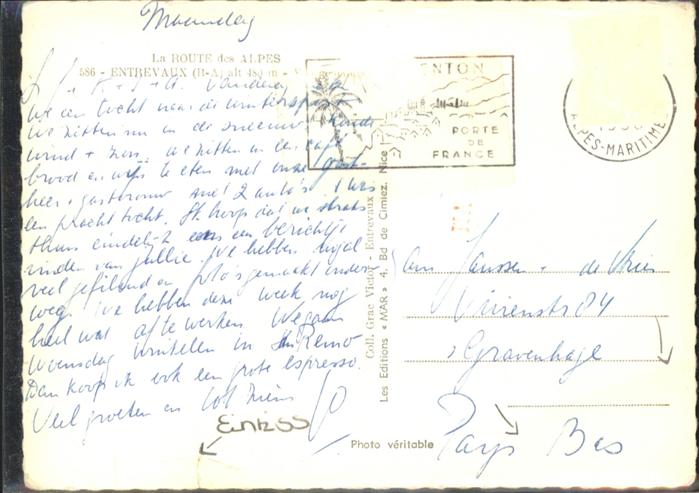 Maandag
La ROUTE des ALPES
586 - ENTREVAUX (B-A) alt 480 m -
MENTON
PORTE
DE
FRANCE
ALPES-MARITIME
Vandaag
we een tocht naar de wintersport
we zitten nu in de sneeuw
wind + zon. we zitten in een café
brood en te eten met onze gast-
heer + gastvrouw met 2 auto's. 't was
een prachttocht. Ik hoop dat we straks
thuis eindelijk een berichtje
vinden van jullie. We hebben nogal
veel gefilmd en foto's gemaakt onder
weg. We hebben deze week nog
heel wat af te werken. We gaan
Woensdag winkelen in San Remo
Dan koop ik ook een grote espresso.
Veel groeten en tot ziens
Coll. Grac Victor - Entrevaux
Les Editions « MAR » 4, Bd de Cimiez, Nice
Janssen - de Vries
84
's Gravenhage
Pays Bas
Photo véritable